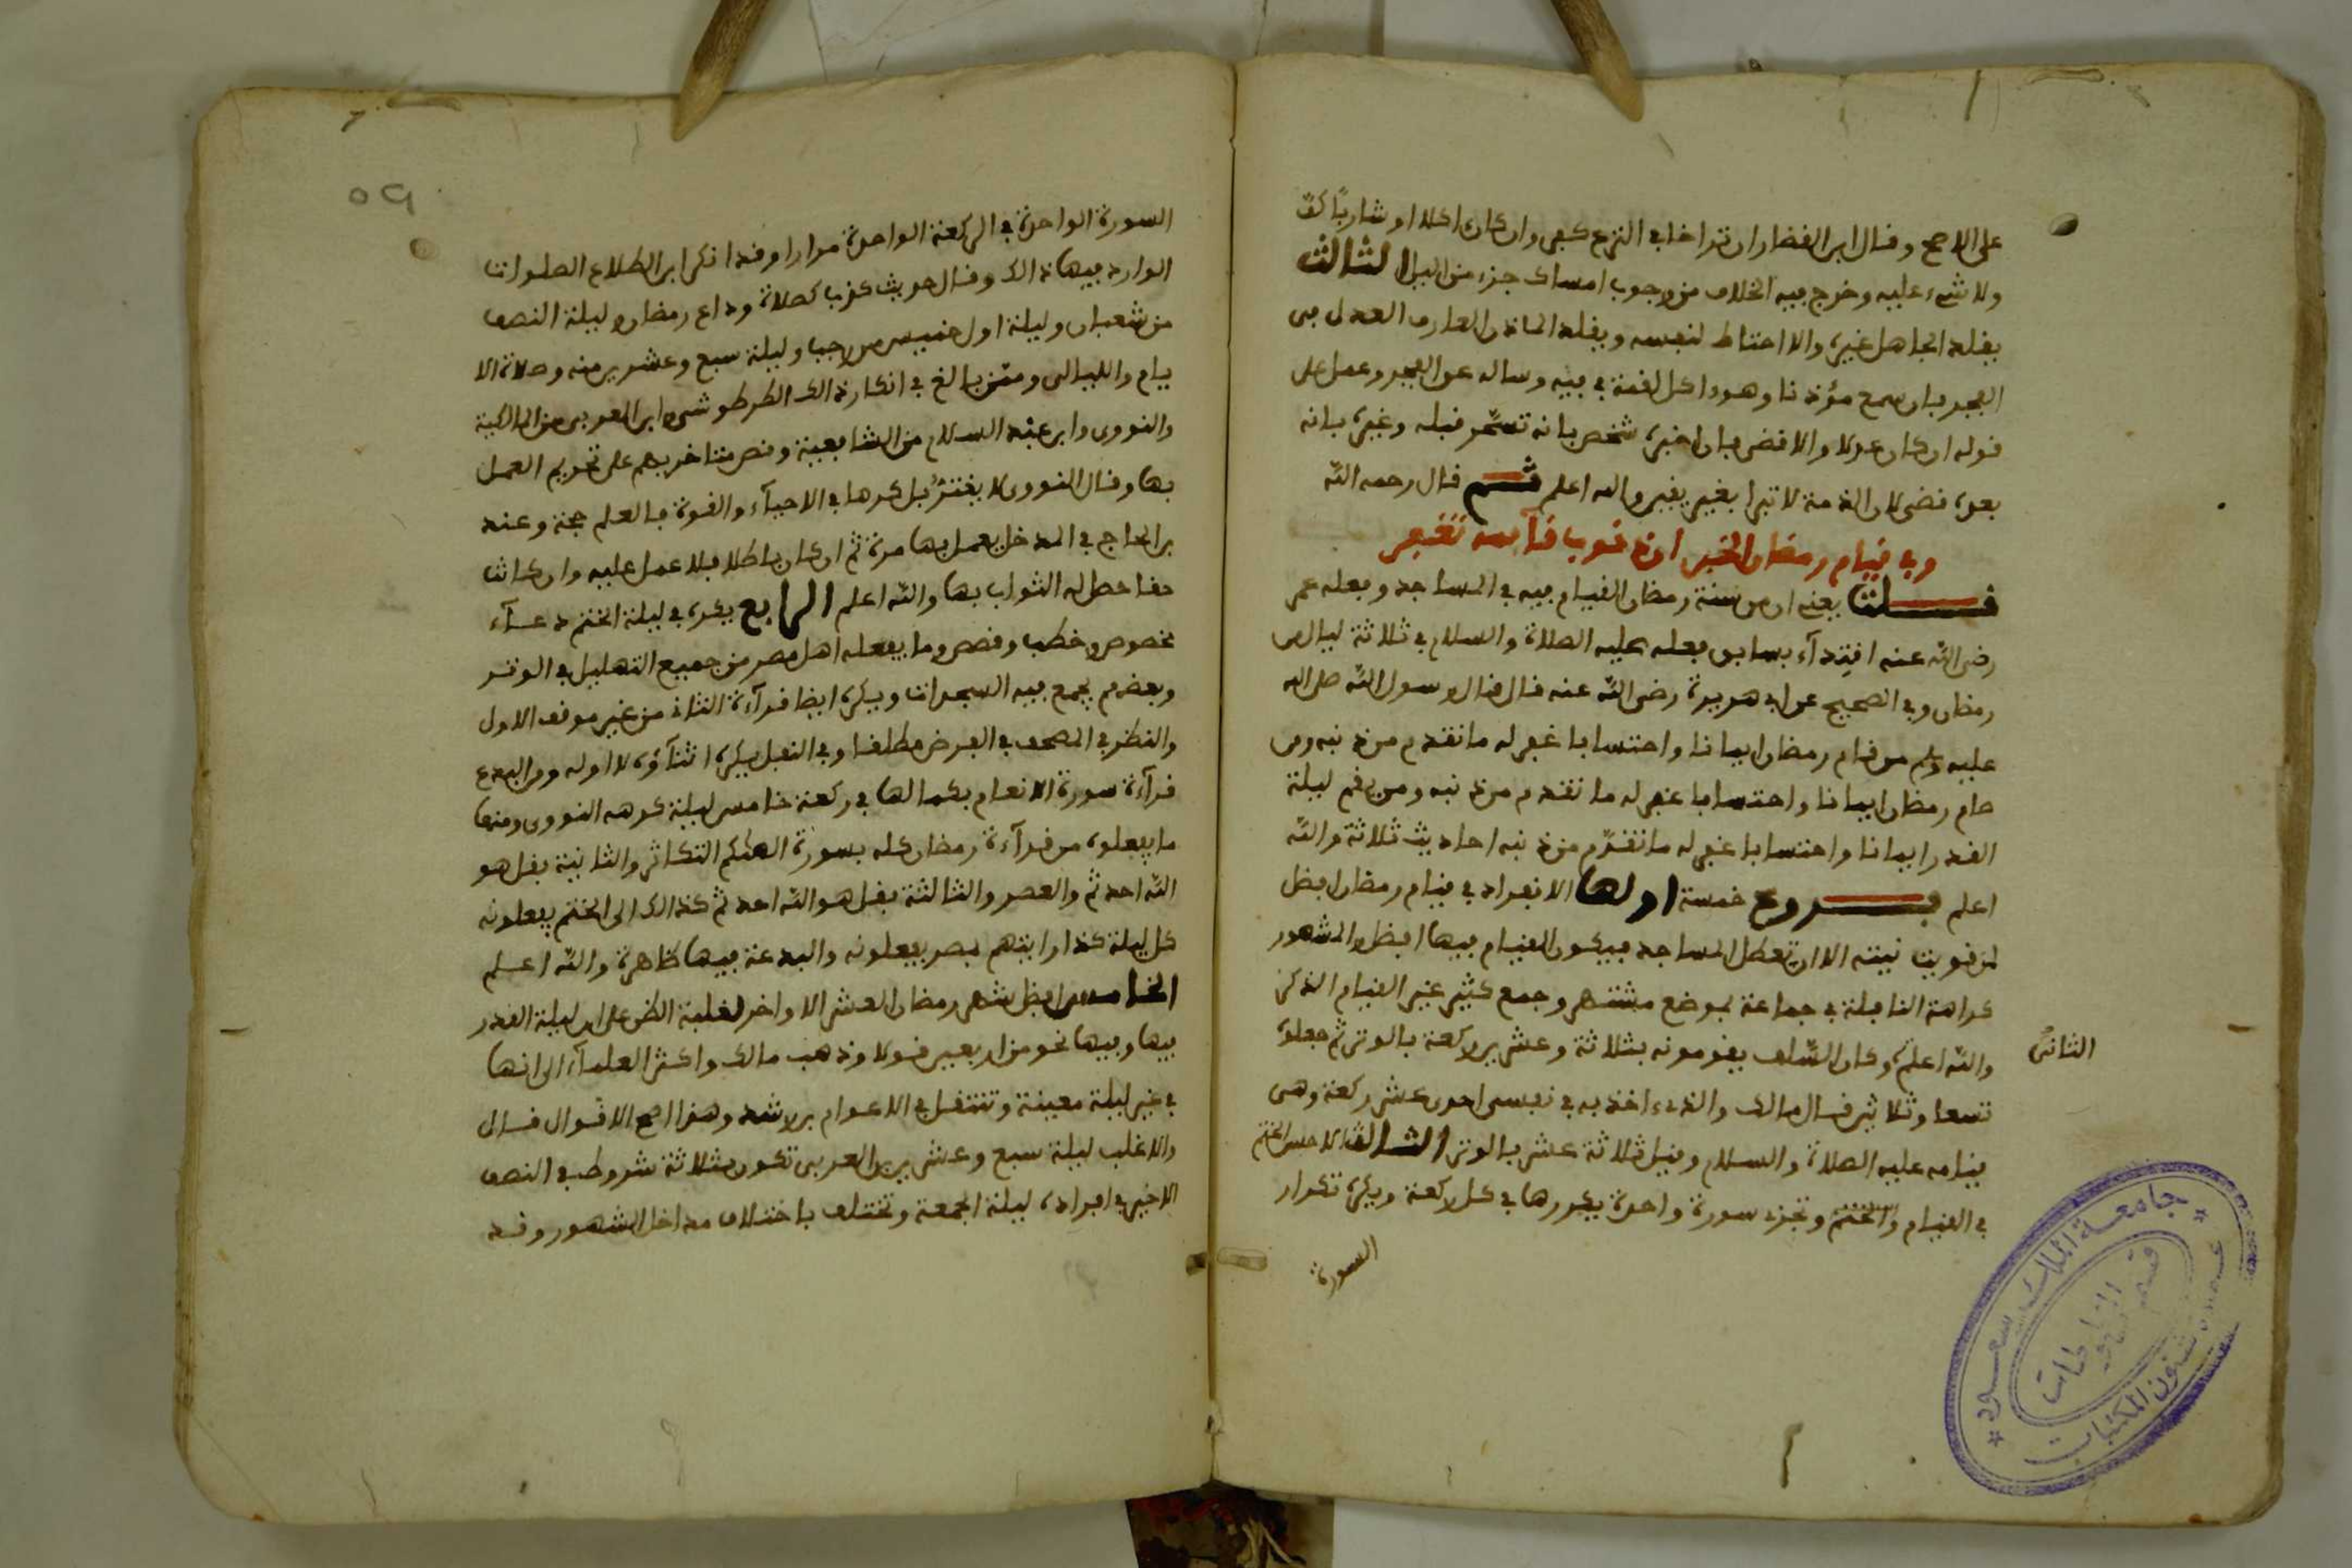 على الاصح وقال ابن القصار ان تراخا في النزع كفر وان كان اكلا او شاربا كف
ولا شيء عليه وخرج فيه الخلاف من وجوب امساك جزء من اليل الثالث
يقلد الجاهل غيره والا احتاط لنفسه ويقلد الماذن العارف العدل في
الفجر فان سمع مؤذنا وهو داكل لقمة في فيه وساله عن الفجر وعمل على
قوله ان كان عدلا والا قضى فان اخبره شخص بانه تسحر قبله وغيره بانه
بعده قضى لان الذمة لا تبرا بغير يقين والله اعلم ثم قال رحمه الله
وفي قيام رمضان الخير ان ذنوب قآئمه تغتفر
قلت يعني ان من سنة رمضان القيام فيه في المساجد وفعله عمر
رضي الله عنه اقتدآء بسابق فعله عليه الصلاة والسلام في ثلاثة ليال من
رمضان وفي الصحيح عن ابي هريرة رضي الله عنه قال قال رسول الله صلى الله
عليه وسلم من قام رمضان ايمانا واحتسابا غفر له ما تقدم من ذنبه ومن
صام رمضان ايمانا واحتسابا غفر له ما تقدم من ذنبه ومن يقم ليلة
القدر ايمانا واحتسابا غفر له ما تقدم من ذنبه احاديث ثلاثة والله
اعلم فروع خمسة اولها الانفراد في قيام رمضان افضل
لمن قويت نيته الا ان تعطل المساجد فيكون القيام فيها افضل والمشهور
كراهة النافلة في جماعة بموضع مشتهر وجمع كثير غير القيام الذكر
والله اعلم وكان السلف يقومونه بثلاثة وعشرين ركعة بالوتر ثم جعلوه
الثاني
تسعا وثلاثين قال مالك والذي اخذ به في نفسي احدى عشر ركعة وهي
قيامه عليه الصلاة والسلام وقيل ثلاثة عشر بالوتر الثالث الاحسن الختم
في القيام والختم وتجزء سورة واحدة يكررها في كل ركعة ويكره تكرار
السورة
جامعة الملك سعود
عمادة شئون المكتبات
قسم المخطوطات
٥٩
السورة الواحدة في الركعة الواحدة مرارا وقد انكر ابن الطلاع الصلوات
الوارد فيها ذالك وقال حديث كذب كصلاة وداع رمضان وليلة النصف
من شعبان وليلة اول خميس من رجب وليلة سبع وعشرين منه وصلاة الا
يام والليالي وممن بالغ في انكار ذالك الطرطوشي وابن العربي من المالكية
والنووي وابن عبد السلام من الشافعية ونص متاخريهم على تحريم العمل
بها وقال النووي لا يغتر بذكرها في الاحيآء والقوة بالعلم حجة وعند
بن الحاج في المدخل يعمل بها مرة ثم ان كان باطلا فلا عمل عليه وان كانت
حقا حصل له الثواب بها والله اعلم الرابع يكره في ليلة الختم دعآء
مخصوص وخطب وقصص وما يفعله اهل مصر من جميع التهليل في الوتر
وبعضهم يجمع فيه السجدات ويكره ايضا قرآءة الثاني من غير موقف الاول
والنظر في المصحف في الفرض مطلقا وفي النفل يكره اثنآؤه لا اوله ومن البدع
قرآءة سورة الانعام بكمالها في ركعة خامس ليلة كرهه النووي ومنها
ما يفعلوه من قرآءة رمضان كله بسورة الهٰكم التكاثر والثانية بقل هو
الله احد ثم والعصر والثالثة بقل هو الله احد ثم كذالك الى الختم يفعلونه
كل ليلة كذا رايتهم بمصر يفعلونه والبدعة فيها ظاهرة والله اعلم
الخامس افضل شهر رمضان العشر الاواخر لغلبة الظن على ان ليلة القدر
فيها وفيها نحو من اربعين قولا وذهب مالك واكثر العلمآء الى انها
في غير ليلة معينة وتنتقل في الاعوام بن رشد وهذا اصح الاقوال قال
والاغلب ليلة سبع وعشرين بن العربي تكون بثلاثة شروط في النصف
الاخير في افراده ليلة الجمعة وتختلف باختلاف مداخل الشهور وقد